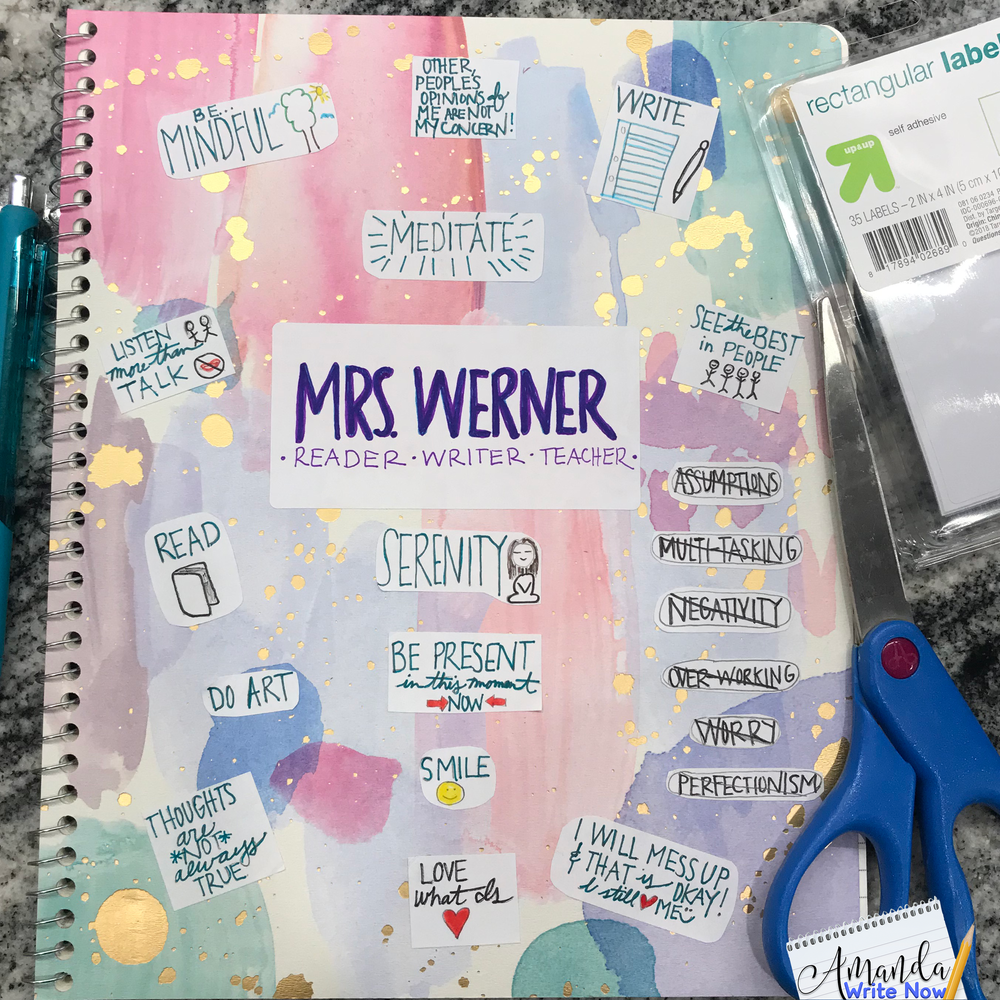 BE...
MINDFUL
OTHER,
PEOPLE'S
OPINIONS of
ME ARE NOT
MY CONCERN!
WRITE
MEDITATE
LISTEN
more than
TALK
SEE the BEST
in PEOPLE
MRS. WERNER
·READER·WRITER·TEACHER·
ASSUMPTIONS
MULTI-TASKING
NEGATIVITY
OVER-WORKING
WORRY
PERFECTIONISM
READ
SERENITY
BE PRESENT
in this moment
NOW
DO ART
SMILE
THOUGHTS
are
*NOT*
always
TRUE
LOVE
what is
I WILL MESS UP
& THAT is OKAY!
I still ME
rectangular label
self adhesive
up&up
35 LABELS – 2 IN x 4 IN (5 cm x
8 17894 02689
Amanda
Write Now